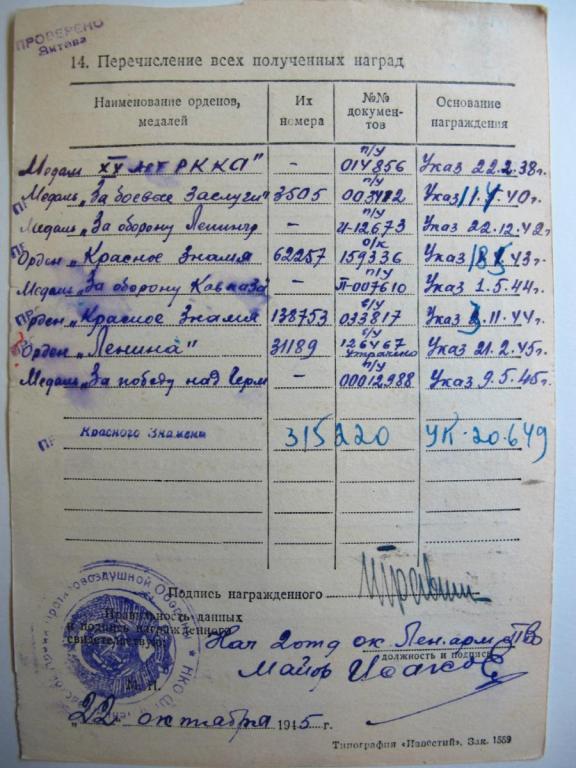 ПРОВЕРЕНО
14. Перечисление всех полученных наград
Наименование орденов, медалей Их номера №№ документов Основание награждения
Медаль XX лет РККА" – п/у 014856 Указ 22.2.38г.
Медаль „За боевые заслуги" 3505 п/у 003412 Указ 40г.
Медаль „За оборону Ленингр – п/у И-12673 Указ 22.12.42г.
Орден „Красное Знамя 62257 о/к 159336 Указ 43г.
Медаль „За оборону Кавказа" – п/у П-007610 Указ 1.5.44г.
Орден „Красное Знамя 138753 033817 Указ 3.11.44г.
Орден „Ленина" 31189 126467 утрачено Указ 21.2.45г.
Медаль „За победу над Герм – п/у 00012988 Указ 9.5.45г.
Красного Знамени 315220 УК-20.649
Подпись награжденного
Правильность данных
и подпись награжденного
свидетельствую: Нач 2 отд ок Лен.арм ПВО
должность и подпись
Майор Исаков
М. П.
„22" октября 1945 г.
Типография «Известий». Зак. 1559